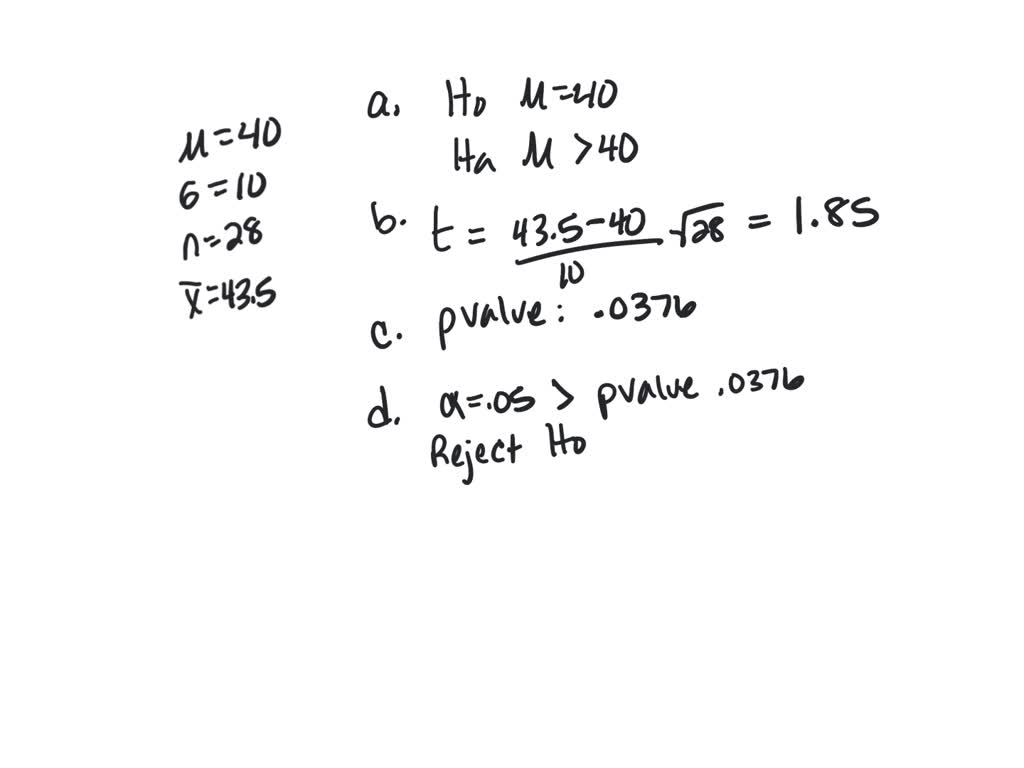 μ=40
σ=10
n=28
x̄=43.5
a. H₀ μ=40
Ha μ>40
b. t = (43.5-40)/10 √28 = 1.85
c. pvalue: .0376
d. α=.05 > pvalue .0376
Reject H₀